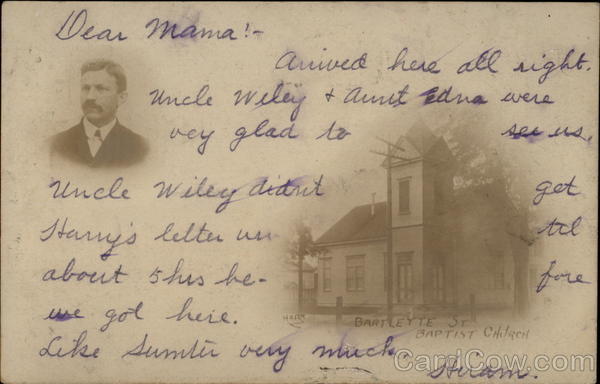 Dear Mama!-
Arrived here all right.
Uncle Wiley + Aunt Edna were
vey glad to see us.
Uncle Wiley didn't get
Harry's letter un til
about 5 hrs be- fore
we got here.
Like Sumter very much
Hiram.
BARTLETTE ST.
BAPTIST CHURCH
CardCow.com